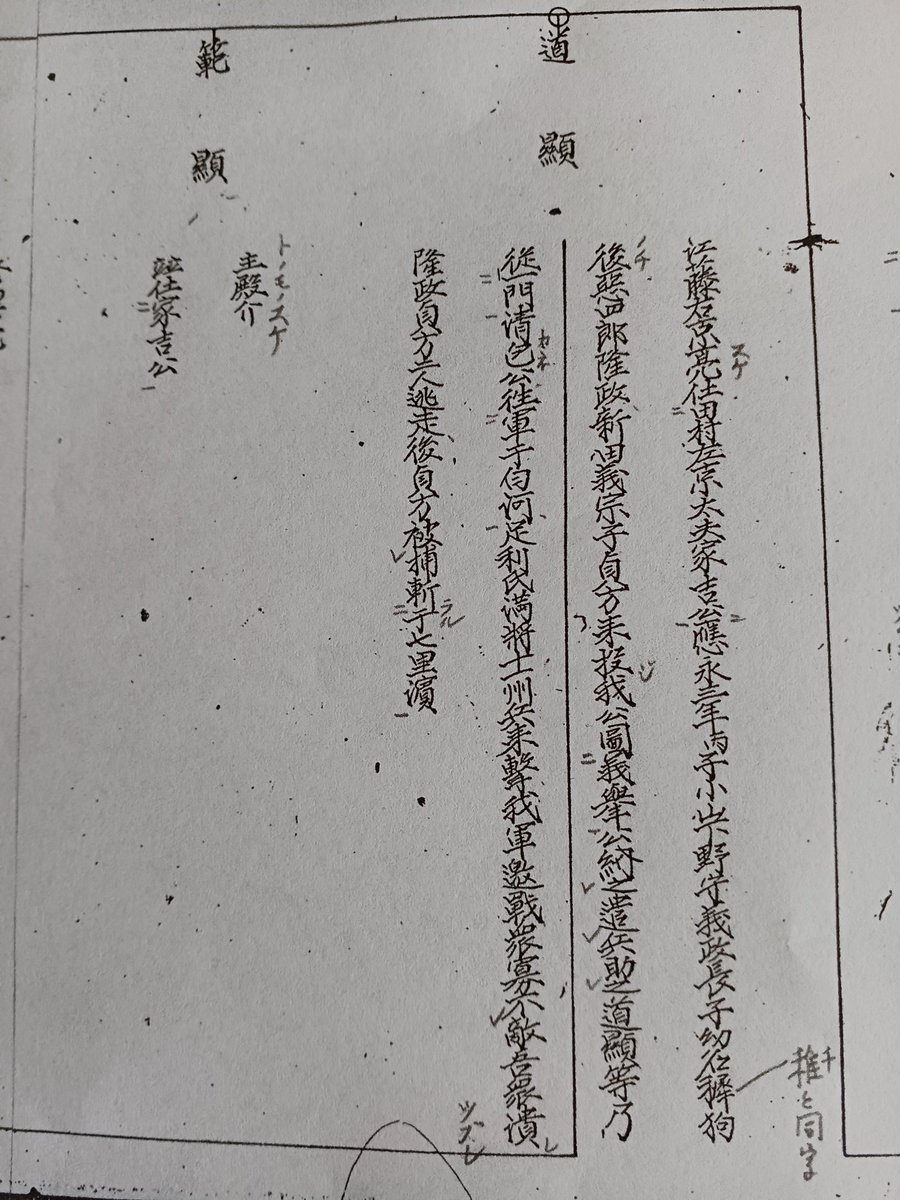 道顯
江藤右京亮仕田村左京太夫家吉公應永三年丙子小山下野守義政長子幼名稺狗
後惡四郎隆政新田義宗子貞方来投我公圖義舉公納之遣兵助之道顯等乃
從一門清包公徃軍于白河足利氏満將十州兵来擊我軍邀戰衆寡不敵吾衆潰
隆政貞方二人逃走後貞方被捕斬于七里濱
範顯
主殿介
竝仕家吉公
スケ
ノチ
カネ
ツブレ
ラル
トノモノスケ
チ
稚と同字